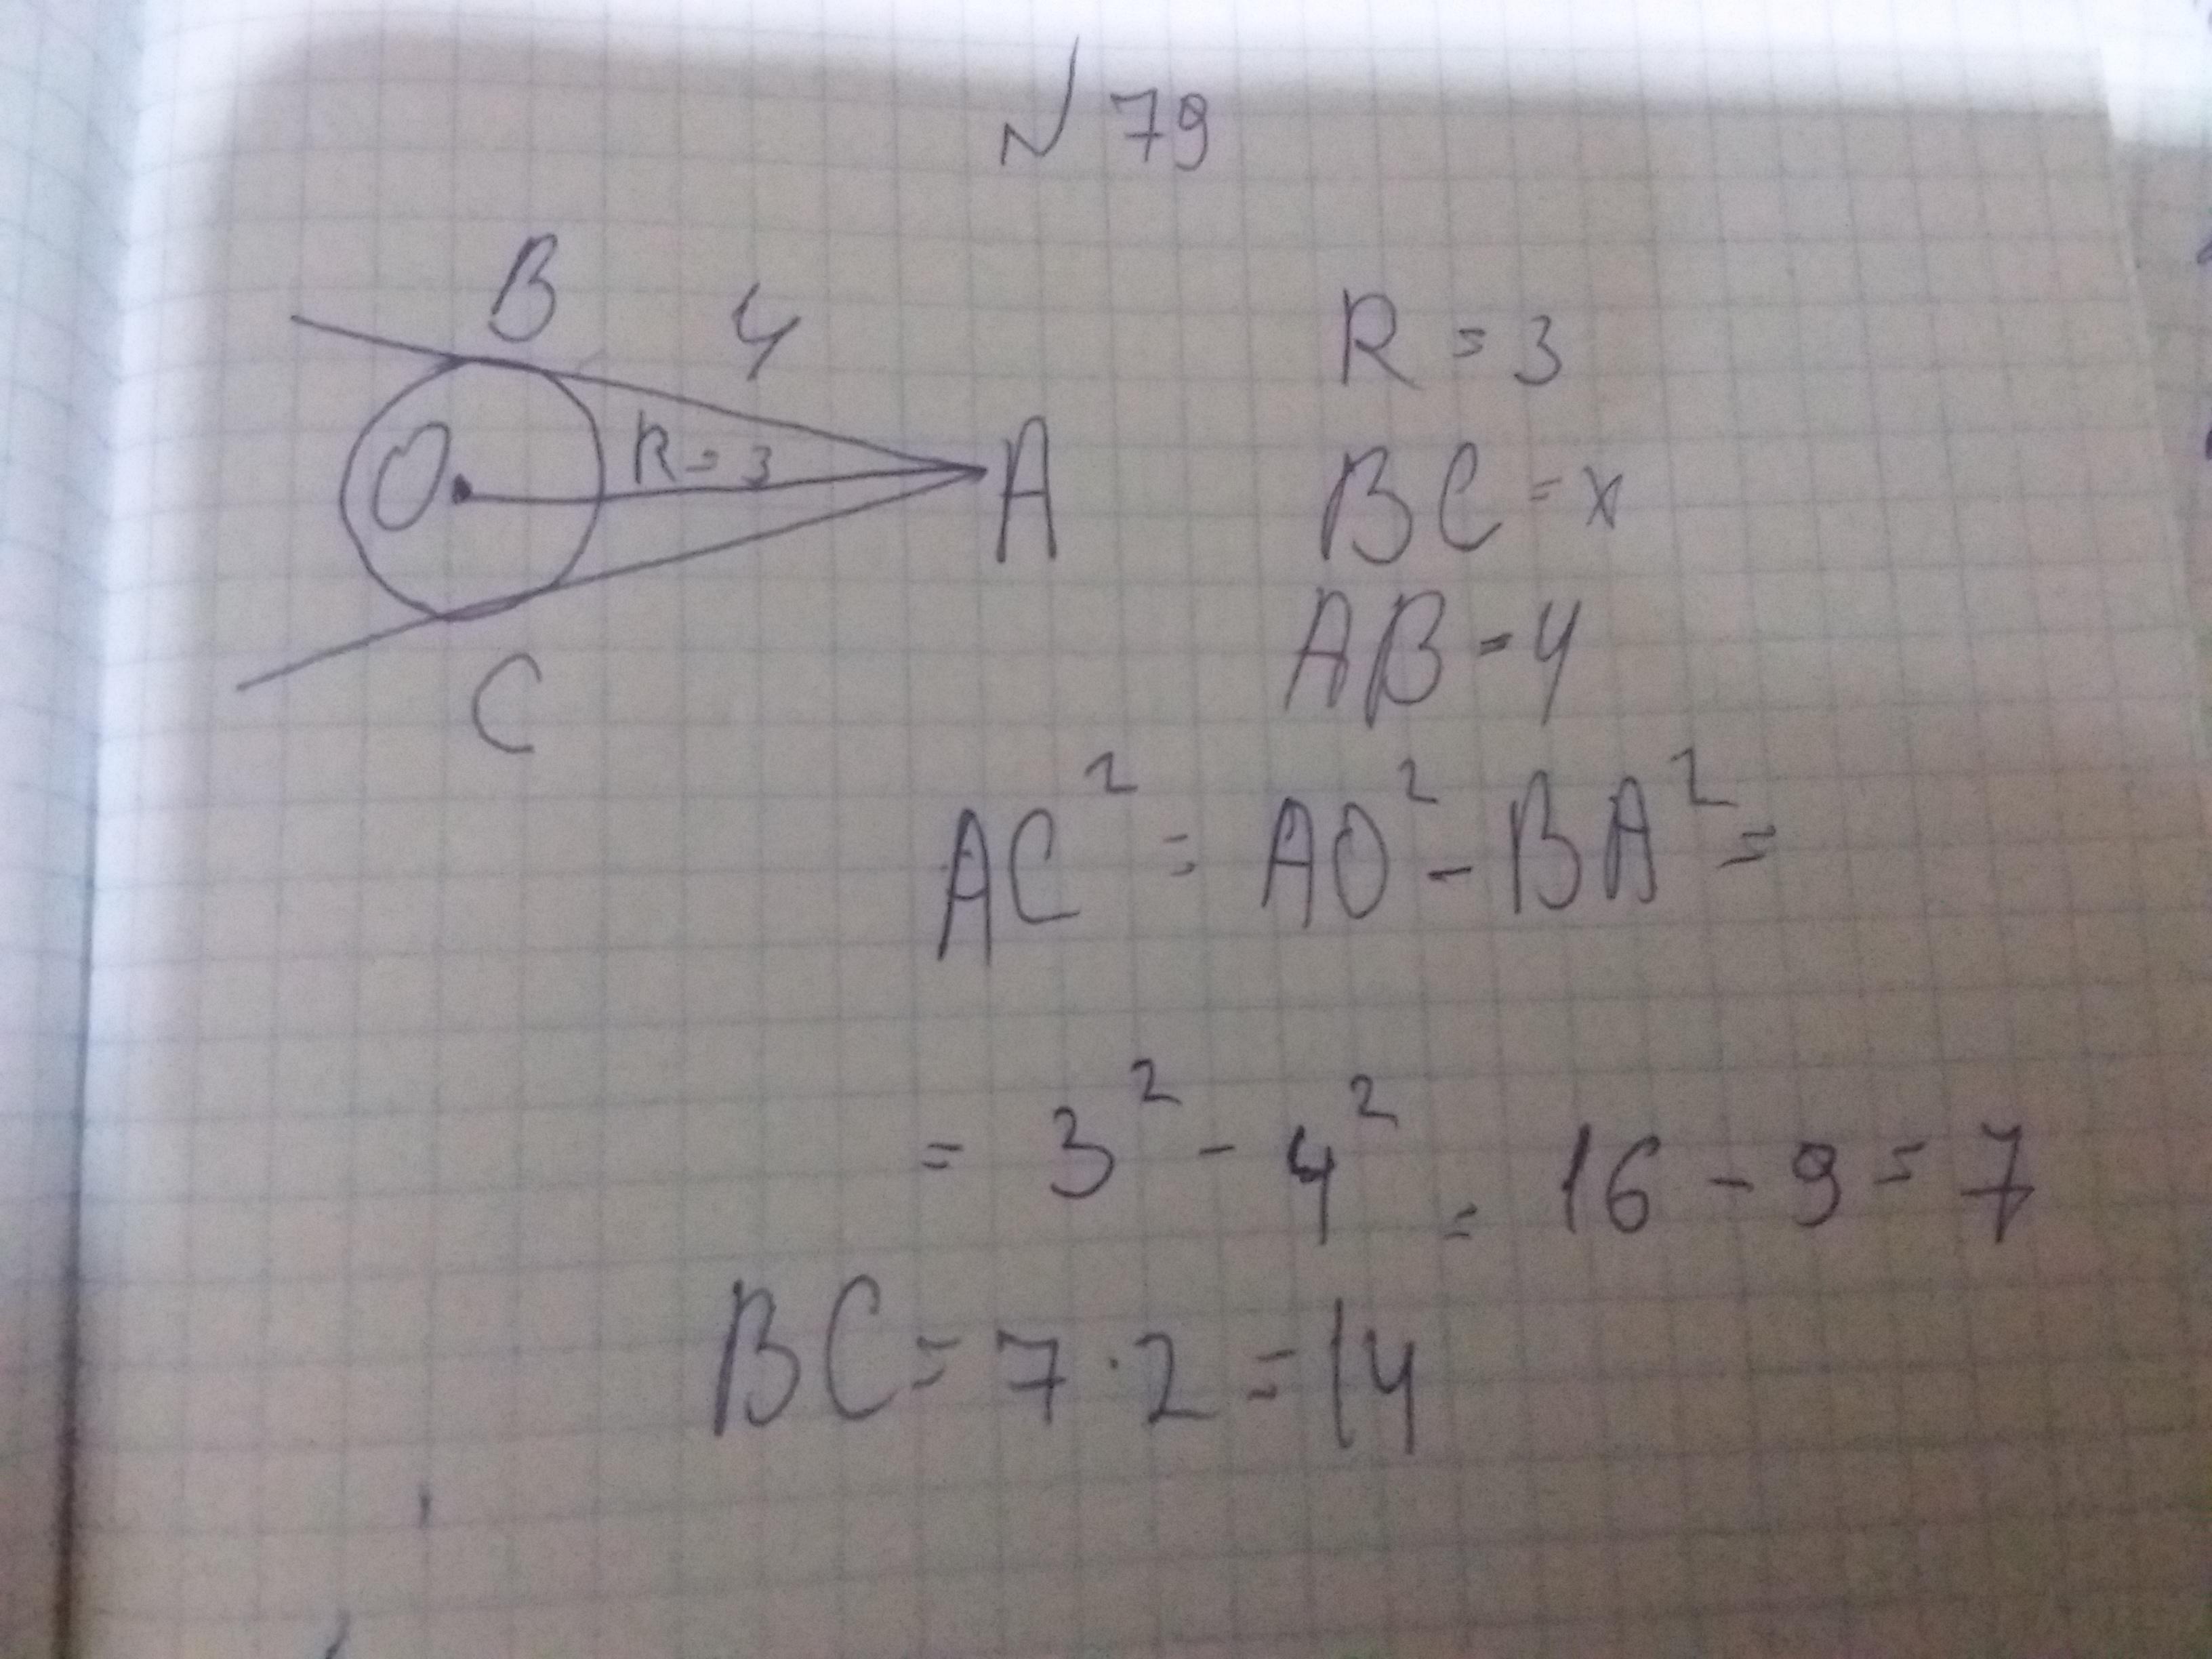 № 79
B
4
O
R = 3
A
C
R = 3
BC = x
AB = 4
AC² = AO² - BA² =
= 3² - 4² = 16 - 9 = 7
BC = 7 · 2 = 14